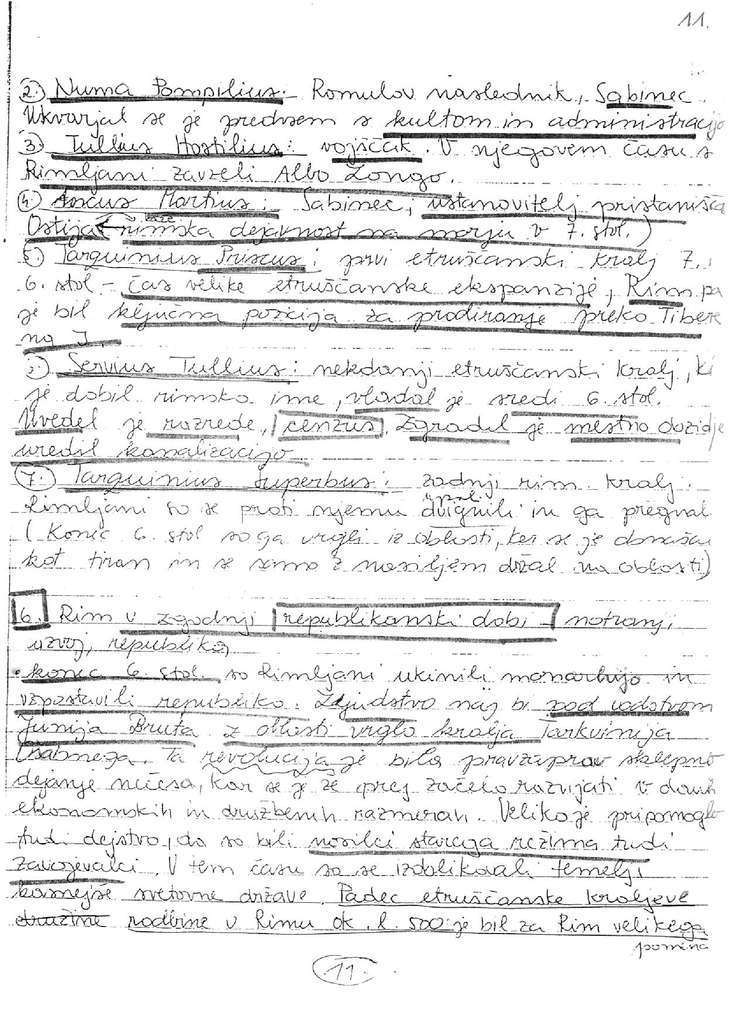 11.
2. Numa Pompilius: Romulov naslednik, Sabinec.
Ukvarjal se je predvsem s kultom in administracijo
3. Tullius Hostilius: vojščak. V njegovem času s
Rimljani zavzeli Albo Longo.
4. Ancus Martius: Sabinec, ustanovitelj pristanišča
Ostija (rimska dejavnost na morju v 7. stol.)
5. Tarquinius Priscus: prvi etruščanski kralj 7.
6. stol - čas velike etruščanske ekspanzije, Rim pa
je bil ključna pozicija za prodiranje preko Tibere
na J.
Servius Tullius: nekdanji etruščanski kralj, ki
je dobil rimsko ime, vladal je sredi 6. stol.
Uvedel je razrede, cenzus. Zgradil je mestno obzidje
uredil kanalizacijo
7. Tarquinius Superbus: zadnji rim. kralj.
Rimljani so se proti njemu dvignili in ga pregnal
(Konec 6. stol so ga vrgli iz oblasti, ker se je obnašal
kot tiran in se samo z nasiljem držal na oblasti)
6. Rim v zgodnji republikanski dobi - notranji
razvoj, republika
• konec 6. stol. so Rimljani ukinili monarhijo in
vzpostavili republiko. Ljudstvo naj bi pod vodstvom
Junija Bruta z oblasti vrglo kralja Tarkvinija
Ta revolucija je bila pravzaprav sklepno
dejanje nečesa, kar se je že prej začelo razvijati v danih
ekonomskih in družbenih razmerah. Veliko je pripomoglo
tudi dejstvo, da so bili nosilci starega režima tudi
zavojevalci. V tem času so se izoblikovali temelji
kasnejše svetovne države. Padec etruščanske kraljeve
družine rodbine v Rimu ok. l. 500 je bil za Rim velikega
pomena
11.